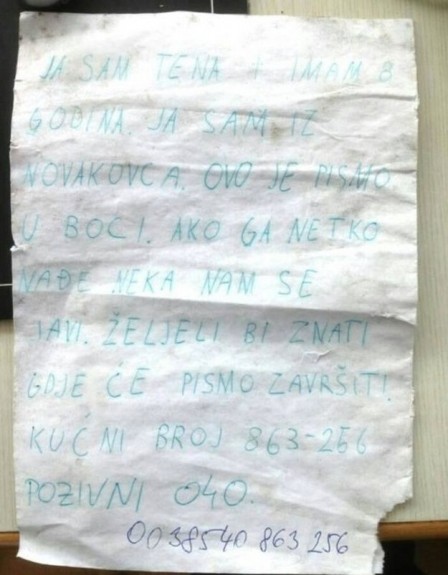 JA SAM TENA I IMAM 8
GODINA. JA SAM IZ
NOVAKOVCA. OVO JE PISMO
U BOCI. AKO GA NETKO
NAĐE NEKA NAM SE
JAVI. ŽELJELI BI ZNATI
GDJE ĆE PISMO ZAVRŠITI.
KUĆNI BROJ 863-256
POZIVNI 040.
0038540 863 256